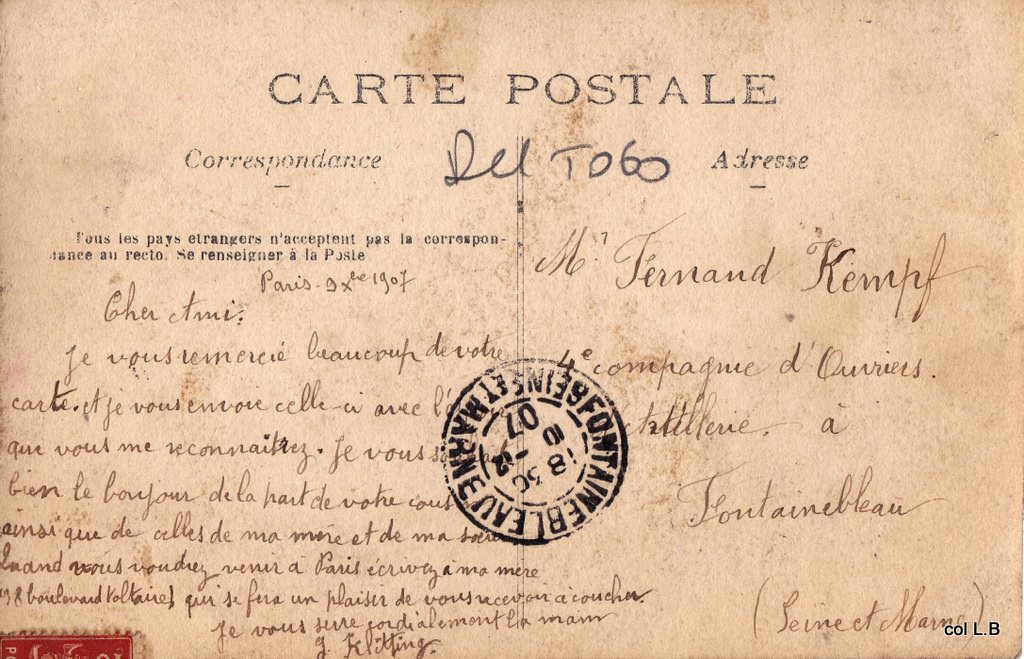 CARTE POSTALE
Correspondance
Del TOGO
Adresse
Tous les pays étrangers n'acceptent pas la correspon-
dance au recto. Se renseigner à la Poste
Paris - 9 Xbre 1907
Cher Ami.
Je vous remercie beaucoup de votre
carte. et je vous envoie celle-ci avec
que vous me reconnaitrez. Je vous
bien le bonjour de la part de votre
ainsi que de celles de ma mère et de ma soeur
Quand vous voudrez venir à Paris écrivez à ma mère
boulevard Voltaire) qui se fera un plaisir de vous recevoir à coucher.
Je vous serre cordialement la main
Mr Fernand Kempf
4e compagnie d'Ouvriers.
Artillerie. à
Fontainebleau
(Seine et Marne)
FONTAINEBLEAU SEINE ET MARNE
18 30
07
col L.B